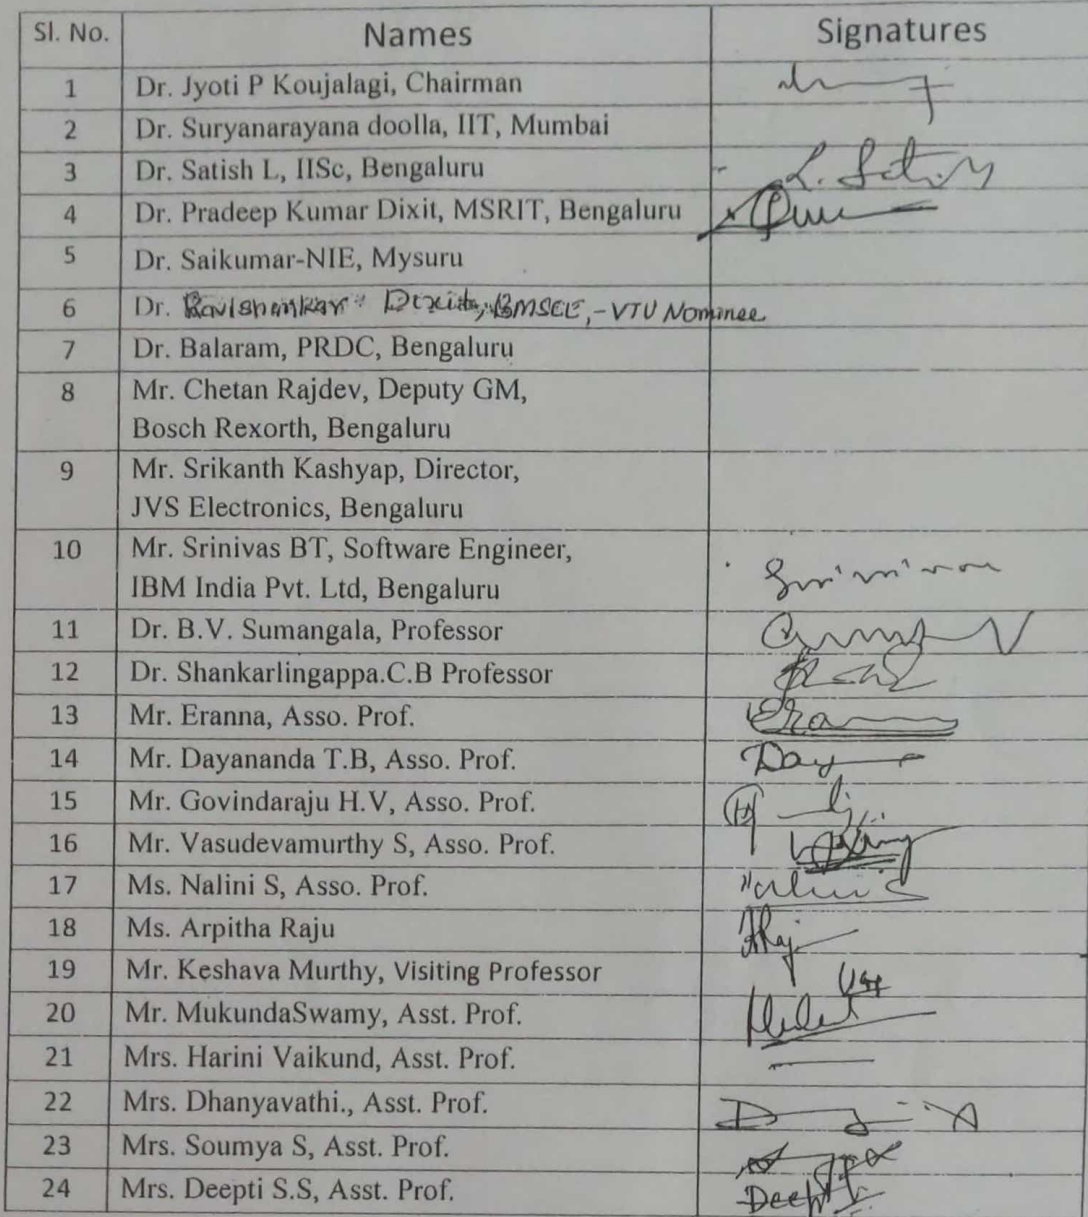 Sl. No. Names Signatures
1 Dr. Jyoti P Koujalagi, Chairman
2 Dr. Suryanarayana doolla, IIT, Mumbai
3 Dr. Satish L, IISc, Bengaluru L. Satish
4 Dr. Pradeep Kumar Dixit, MSRIT, Bengaluru
5 Dr. Saikumar-NIE, Mysuru
6 Dr. Ravishankar Dixit, BMSCE, -VTU Nominee
7 Dr. Balaram, PRDC, Bengaluru
8 Mr. Chetan Rajdev, Deputy GM,
Bosch Rexorth, Bengaluru
9 Mr. Srikanth Kashyap, Director,
JVS Electronics, Bengaluru
10 Mr. Srinivas BT, Software Engineer,
IBM India Pvt. Ltd, Bengaluru
11 Dr. B.V. Sumangala, Professor
12 Dr. Shankarlingappa.C.B Professor
13 Mr. Eranna, Asso. Prof.
14 Mr. Dayananda T.B, Asso. Prof. Day
15 Mr. Govindaraju H.V, Asso. Prof.
16 Mr. Vasudevamurthy S, Asso. Prof.
17 Ms. Nalini S, Asso. Prof. Nalini S
18 Ms. Arpitha Raju
19 Mr. Keshava Murthy, Visiting Professor
20 Mr. MukundaSwamy, Asst. Prof.
21 Mrs. Harini Vaikund, Asst. Prof.
22 Mrs. Dhanyavathi., Asst. Prof.
23 Mrs. Soumya S, Asst. Prof.
24 Mrs. Deepti S.S, Asst. Prof. Deepti